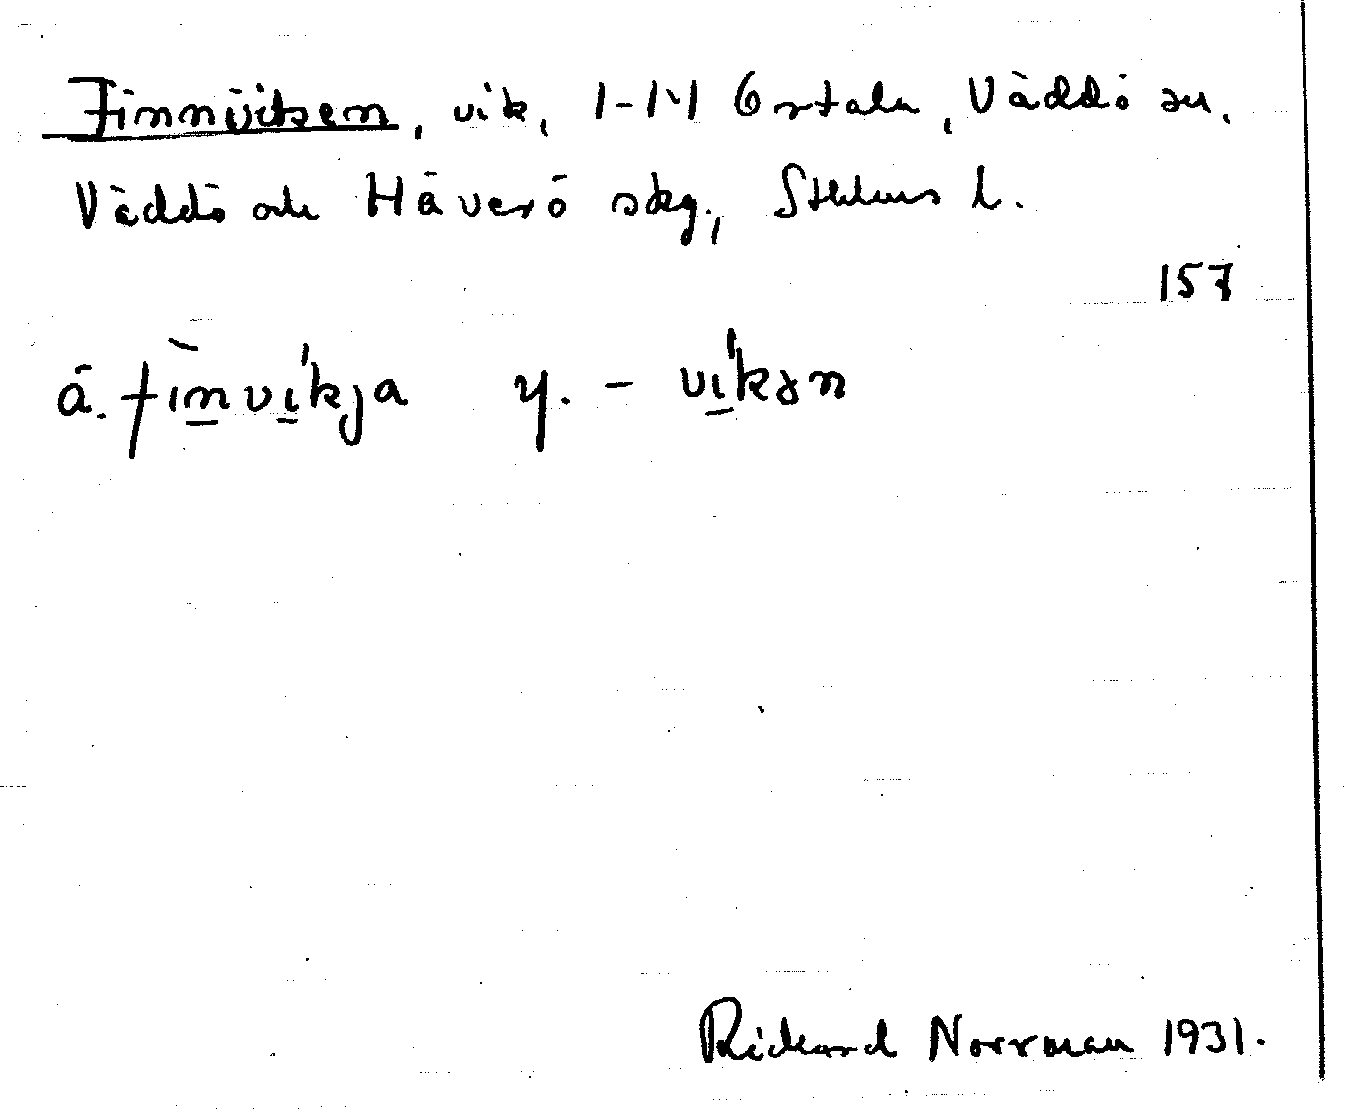 Finnviken, vik, 1-14 Ortala, Väddö sn,
Väddö och Häverö skg., Sthlms l.
157
ä. fìnvíkja y. – víkən
Rickard Norrman 1931.